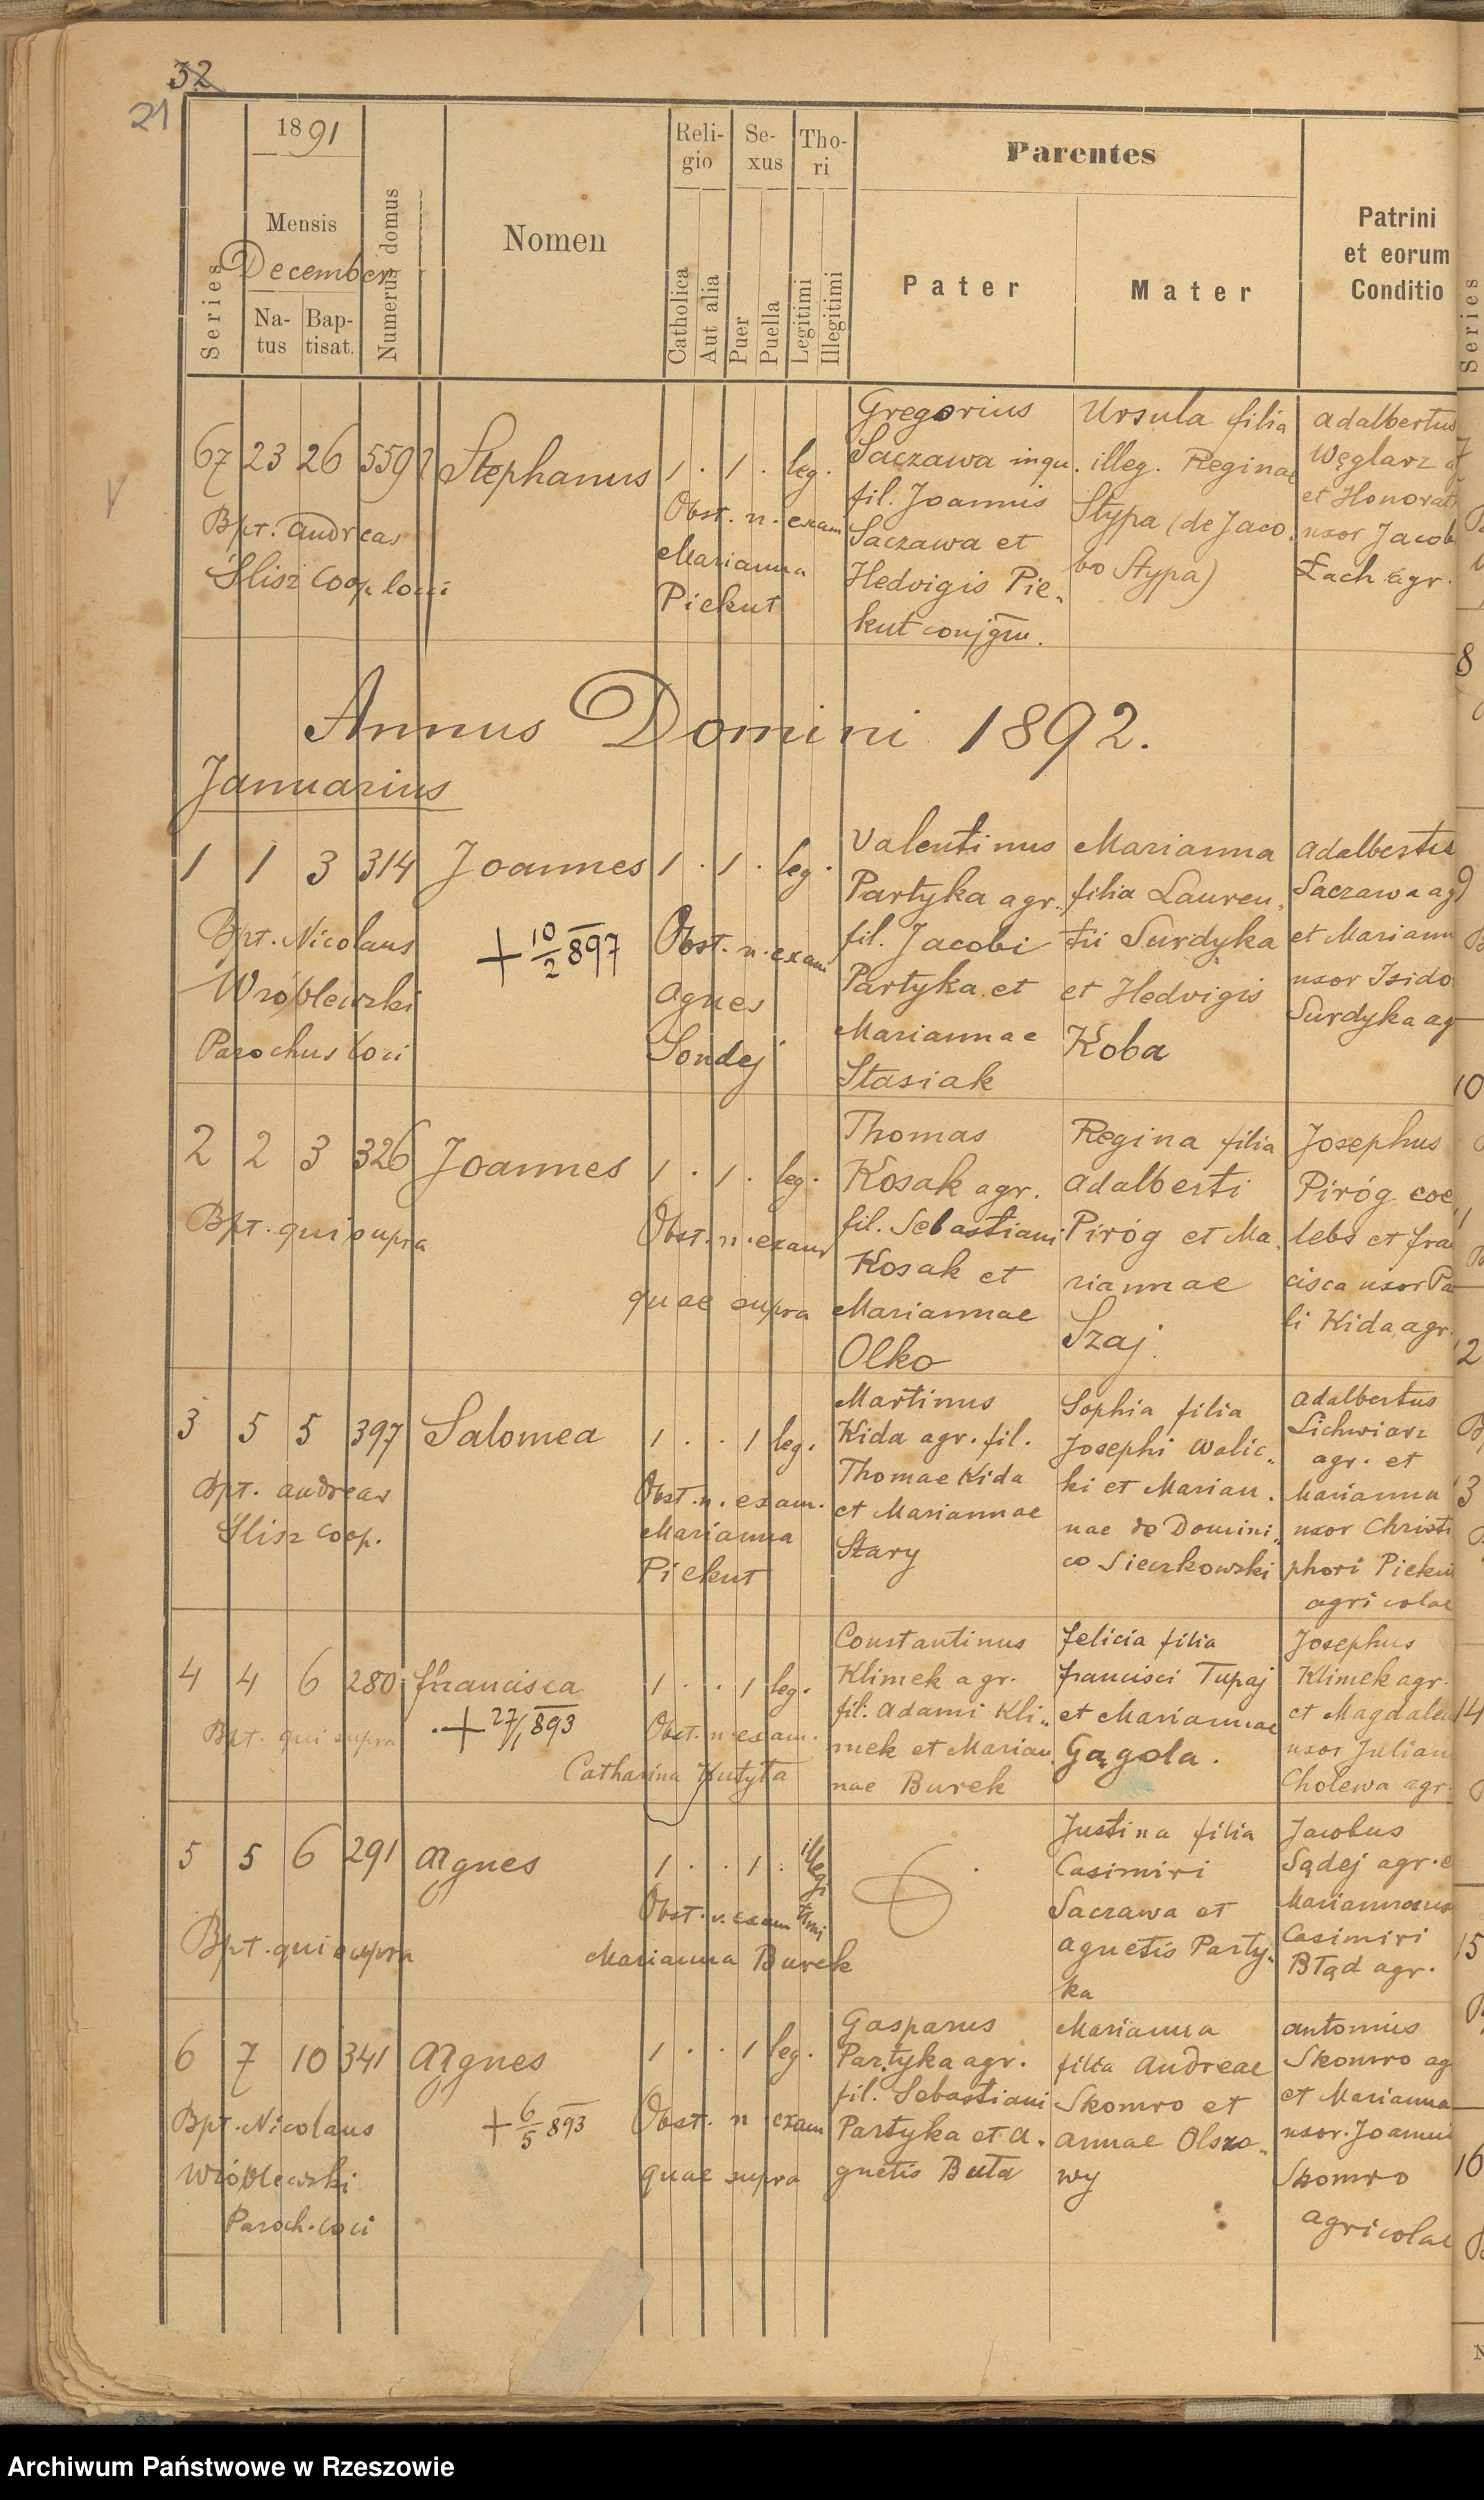 32
21
1891
Mensis
December
Series
Na-
tus
Bap-
tisat.
Numerus domus
Nomen
Reli-
gio
Catholica
Aut alia
Se-
xus
Puer
Puella
Tho-
ri
Legitimi
Illegitimi
Parentes
Pater
Mater
Patrini
et eorum
Conditio
Series
67 23 26 559 Stephanus 1 . 1 . leg.
Bpt. Andreas
Ślisz Coop. loci
Obst. n. exam
Marianna
Piekut
Gregorius
Saczawa inqu.
fil. Joannis
Saczawa et
Hedvigis Pie„
kut conjgm.
Ursula filia
illeg. Reginae
Stypa (de Jaco„
bo Stypa)
Adalbertus
Węglarz
et Honorat
uxor Jacob
Łach agr.
Annus Domini 1892.
Januarius
1 1 3 314 Joannes 1 . 1 . leg.
Bpt. Nicolaus
Wróblewski
Parochus loci
+ 10/2 897
Obst. n. exam
Agnes
Sondej
Valentinus
Partyka agr.
fil. Jacobi
Partyka et
Mariannae
Stasiak
Marianna
filia Lauren„
tii Surdyka
et Hedvigis
Koba
Adalbertus
Saczawa ag
et Mariann
uxor Isido
Surdyka ag
2 2 3 326 Joannes 1 . 1 . leg.
Bpt. qui supra
Obst. n. exam
quae supra
Thomas
Kosak agr.
fil. Sebastiani
Kosak et
Mariannae
Olko
Regina filia
Adalberti
Piróg et Ma„
riannae
Szaj
Josephus
Piróg coe
lebs et fra
cisca uxor Pa
li Kida agr.
3 5 5 397 Salomea 1 . . 1 leg.
Bpt. Andreas
Ślisz Coop.
Obst. n. exam.
Marianna
Piekut
Martinus
Kida agr. fil.
Thomae Kida
et Mariannae
Stary
Sophia filia
Josephi Walic„
ki et Marian„
nae de Domini„
co Sieczkowski
Adalbertus
Lichwiarz
agr. et
Marianna
uxor Christi
phori Pieku
agricolae
4 4 6 280 Francisca 1 . . 1 leg.
Bpt. qui supra
+ 27/1 893
Obst. n. exam.
Catharina Kutyła
Constantinus
Klimek agr.
fil. Adami Kli„
mek et Marian„
nae Burek
Felicia filia
Francisci Tupaj
et Mariannae
Gągola.
Josephus
Klimek agr.
et Magdalen
uxor Julian
Cholewa agr.
5 5 6 291 Agnes 1 . . 1 . illegi
timi
Bpt. qui supra
Obst. n. exam
Marianna Burek
Justina filia
Casimiri
Saczawa et
Agnetis Party„
ka
Jacobus
Sądej agr. e
Marianna uxo
Casimiri
Błąd agr.
6 7 10 341 Agnes 1 . . 1 leg.
Bpt. Nicolaus
Wróblewski
Paroch. loci
+ 6/5 893
Obst. n exam
quae supra
Gasparus
Partyka agr.
fil. Sebastiani
Partyka et A„
gnetis Buta
Marianna
filia Andreae
Skomro et
Annae Olszo„
wy
Antonius
Skomro ag
et Marianna
uxor Joannis
Skomro
agricolae
7
8
9
10
11
12
13
14
15
16
Archiwum Państwowe w Rzeszowie